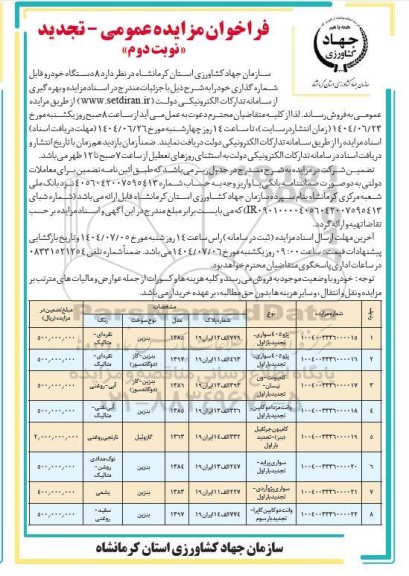 فراخوان مزایده عمومی - تجدید
«نوبت دوم»
همه با هم
جهاد
کشاورزی
سازمان جهاد کشاورزی استان کرمانشاه
سازمان جهاد کشاورزی استان کرمانشاه در نظر دارد ۸ دستگاه خودرو قابل
شماره گذاری خود را به شرح ذیل با جزئیات مندرج در اسناد مزایده و بهره گیری
از سامانه تدارکات الکترونیکی دولت (www.setdiran.ir) از طریق مزایده
عمومی به فروش رساند. لذا از کلیه متقاضیان محترم دعوت به عمل می آید از ساعت ۸ صبح روز یکشنبه مورخ
۱۴۰۴/۰۶/۲۳ (زمان انتشار در سایت)، تا ساعت ۱۴ روز چهارشنبه مورخ ۱۴۰۴/۰۶/۲۶ (مهلت دریافت اسناد)
اسناد مزایده را از طریق سامانه تدارکات الکترونیکی دولت دریافت نمایند. ضمناً زمان بازدید هم زمان با تاریخ انتشار و
دریافت اسناد در سامانه تدارکات الکترونیکی دولت به استثنای روزهای تعطیل از ساعت ۷ صبح تا ۱۲ ظهر می باشد.
تضمین شرکت در مزایده به شرح مندرج در جدول زیر می باشد که طبق آئین نامه تضمین برای معاملات
دولتی به دو صورت ضمانتنامه بانکی یا واریز وجه به حساب شماره ۴۰۵۶۰۴۲۰۰۷۵۹۵۴۱۳ نزد بانک ملی
شعبه مرکزی کرمانشاه بنام سپرده سازمان جهاد کشاورزی استان کرمانشاه قابل ارائه می باشد (شماره شبای
که می بایست برابر مبلغ مندرج در این آگهی و اسناد مزایده بر حسب
تقاضا تهیه و ارائه گردد.
آخرین مهلت ارسال اسناد مزایده (ثبت در سامانه) راس ساعت ۱۴ روز شنبه مورخ ۱۴۰۴/۰۷/۰۵ و تاریخ بازگشایی
پیشنهادات قیمت: ساعت ۰۹:۰۰ روز یکشنبه مورخ ۱۴۰۴/۰۷/۰۶ می باشد. ضمناً شماره تلفن ۰۸۳۳۱۵۲۱۲۵۴
در ساعات اداری پاسخگوی متقاضیان محترم خواهد بود.
توجه: خودرو با وضعیت موجود به فروش می رسند و کلیه هزینه ها و کسورات از جمله عوارض و مالیات های مترتب بر
مزایده و نقل و انتقال، و سایر هزینه ها بدون حق مطالبه، بر عهده خریدار می باشد.
ردیف شماره مزایده مشخصات مبلغ تضمین در مزایده (ریال)
نوع شماره پلاک مدل نوع سوخت رنگ
۱ ۱۰۰۴۰۰۳۳۳۶۰۰۰۰۱۵ پژو ۴۰۵ سواری- تجدید بار اول بنزین نقره ای- متالیک ۵۰۰,۰۰۰,۰۰۰
۲ ۱۰۰۴۰۰۳۳۳۶۰۰۰۰۱۶ پژو ۴۰۵ سواری- تجدید بار اول بنزین-گاز (دوگانه سوز) نقره ای- متالیک ۵۰۰,۰۰۰,۰۰۰
۳ ۱۰۰۴۰۰۳۳۳۶۰۰۰۰۱۷ کامیونت-ون نیسان- تجدید بار اول بنزین-گاز (دوگانه سوز) آبی-روغنی ۵۰۰,۰۰۰,۰۰۰
۴ ۱۰۰۴۰۰۳۳۳۶۰۰۰۰۱۸ وانت مزدا دو کابین- تجدید بار اول ۱۳۸۵ بنزین متالیک ۵۰۰,۰۰۰,۰۰۰
۵ ۱۰۰۴۰۰۳۳۳۶۰۰۰۰۱۹ کامیون جرثقیل (بنز)-تجدید بار اول ۱۳۶۳ گازوئیل نارنجی روغنی ۲,۰۰۰,۰۰۰,۰۰۰
۶ ۱۰۰۴۰۰۳۳۳۶۰۰۰۰۲۰ سواری پراید- تجدید بار اول ۲۴۷ الف ۱۳ ایران ۱۹ ۱۳۸۴ بنزین نوک مدادی روشن- متالیک ۵۰۰,۰۰۰,۰۰۰
۷ ۱۰۰۴۰۰۳۳۳۶۰۰۰۰۲۱ سواری پژو آردی- تجدید بار اول ۲۲۷ الف ۱۱ ایران ۱۹ ۱۳۸۳ بنزین یشمی ۴۰۰,۰۰۰,۰۰۰
۸ ۱۰۰۴۰۰۳۳۳۶۰۰۰۰۲۲ وانت دو کابین کاپرا- تجدید بار سوم ۷۷۴ الف ۱۴ ایران ۱۹ ۱۳۹۷ بنزین سفید- روغنی ۵۰۰,۰۰۰,۰۰۰
سازمان جهاد کشاورزی استان کرمانشاه